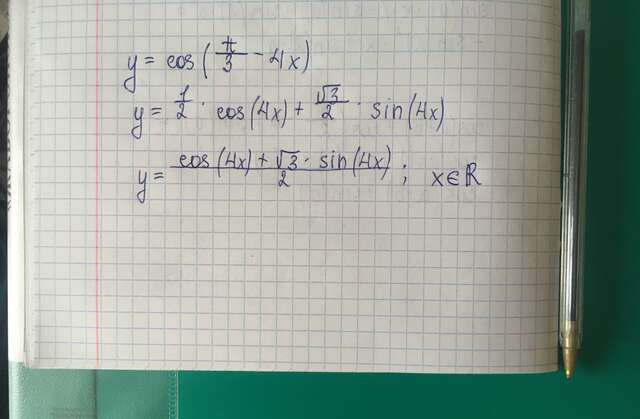 y = cos(π/3 - 4x)
y = 1/2 · cos(4x) + √3/2 · sin(4x)
y = (cos(4x) + √3 · sin(4x))/2 ; x∈R